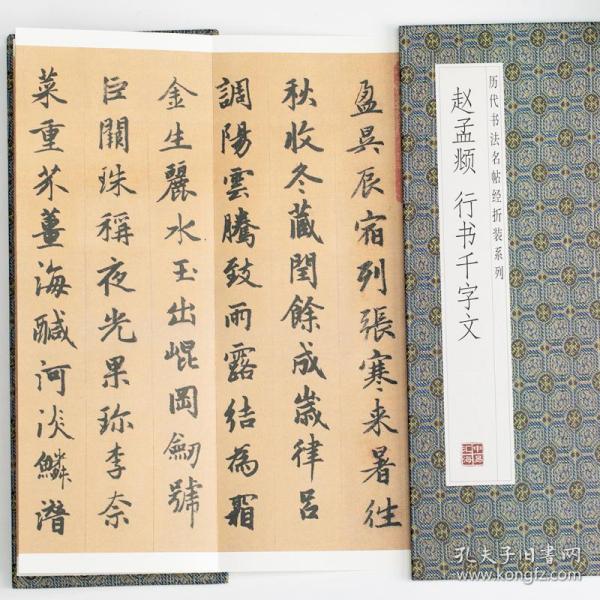 历代书法名帖经折装系列
赵孟𫖯 行书千字文
盈昃辰宿列張寒来暑往
秋收冬藏閏餘成歲律吕
調陽雲騰致雨露結為霜
金生麗水玉出崐岡劒號
巨闕珠稱夜光果珍李柰
菜重芥薑海醎河淡鱗潜
孔夫子旧书网
www.kongfz.com